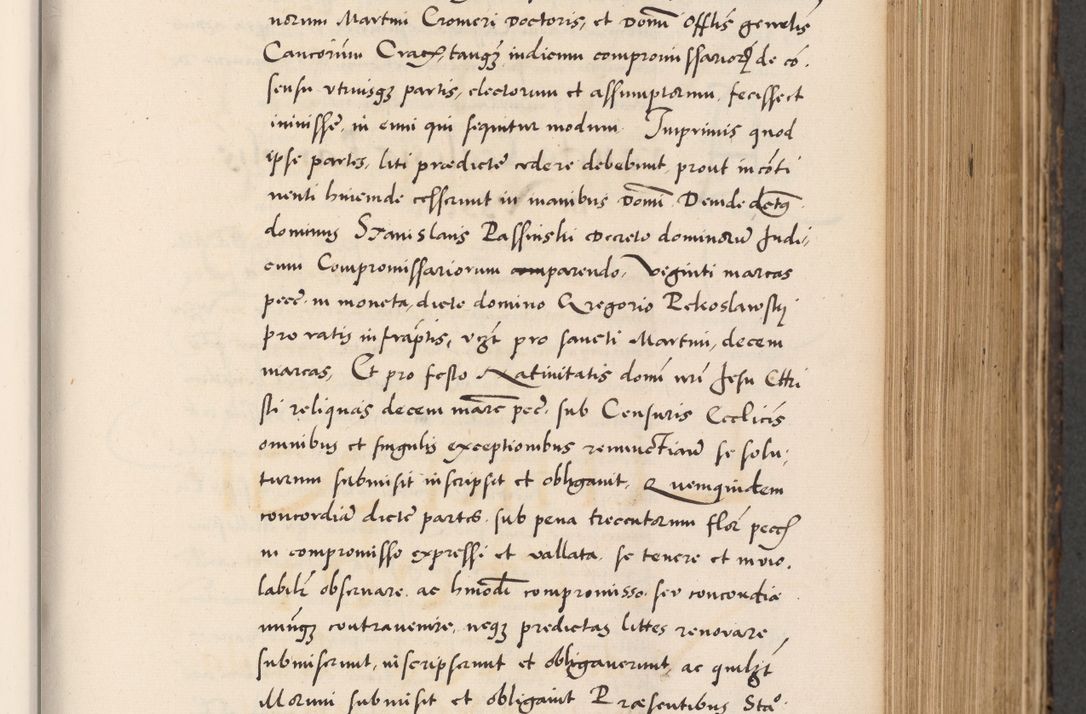 norum Martini Cromeri Doctoris, et Domi Offlis genrelis
Canricorum Crac, tanqз indicium compromissarior de co.
sensu vtriusqз partis, electorum et assumptorum, fecissect
iniuisse, in eum qui sequitur modum Imprimis quod
ipse partes, liti predicte cedere debebunt, prout in coti
nenti huiusmde cesserunt in manibus Domi. Deinde detus
dominus Stanislaus Passinski decreto dominorum Judi,
cum Compromissariorum comparendo, Veginti marcas
pecc in moneta, dicto domino Gregorio Pekoslawskÿ
pro ratis infraptis, vzt pro sancti Martini, decem
marcas, Et pro festo Natiuitatis domi nri Jesu Chri
sti reliquas decem marc pecc. sub Censuris Ecclicis
omnibus et singulis exceptionibus renunctiari se solu,
turum submisit inscripsit et obligauit, Quemquidem
concordia dicte partes sub pena trecentorum flor pecc
in compromisso expressi et vallata se tenere et inuio.
labilr obseruare ac hmodi compromisso seu concordia
nunqз contrauenire, neqз predictas littes renouare
submiserunt, inscripserunt et obligauerunt, ac quilzt
illorum submisit et obligauit Præsentibus Sta